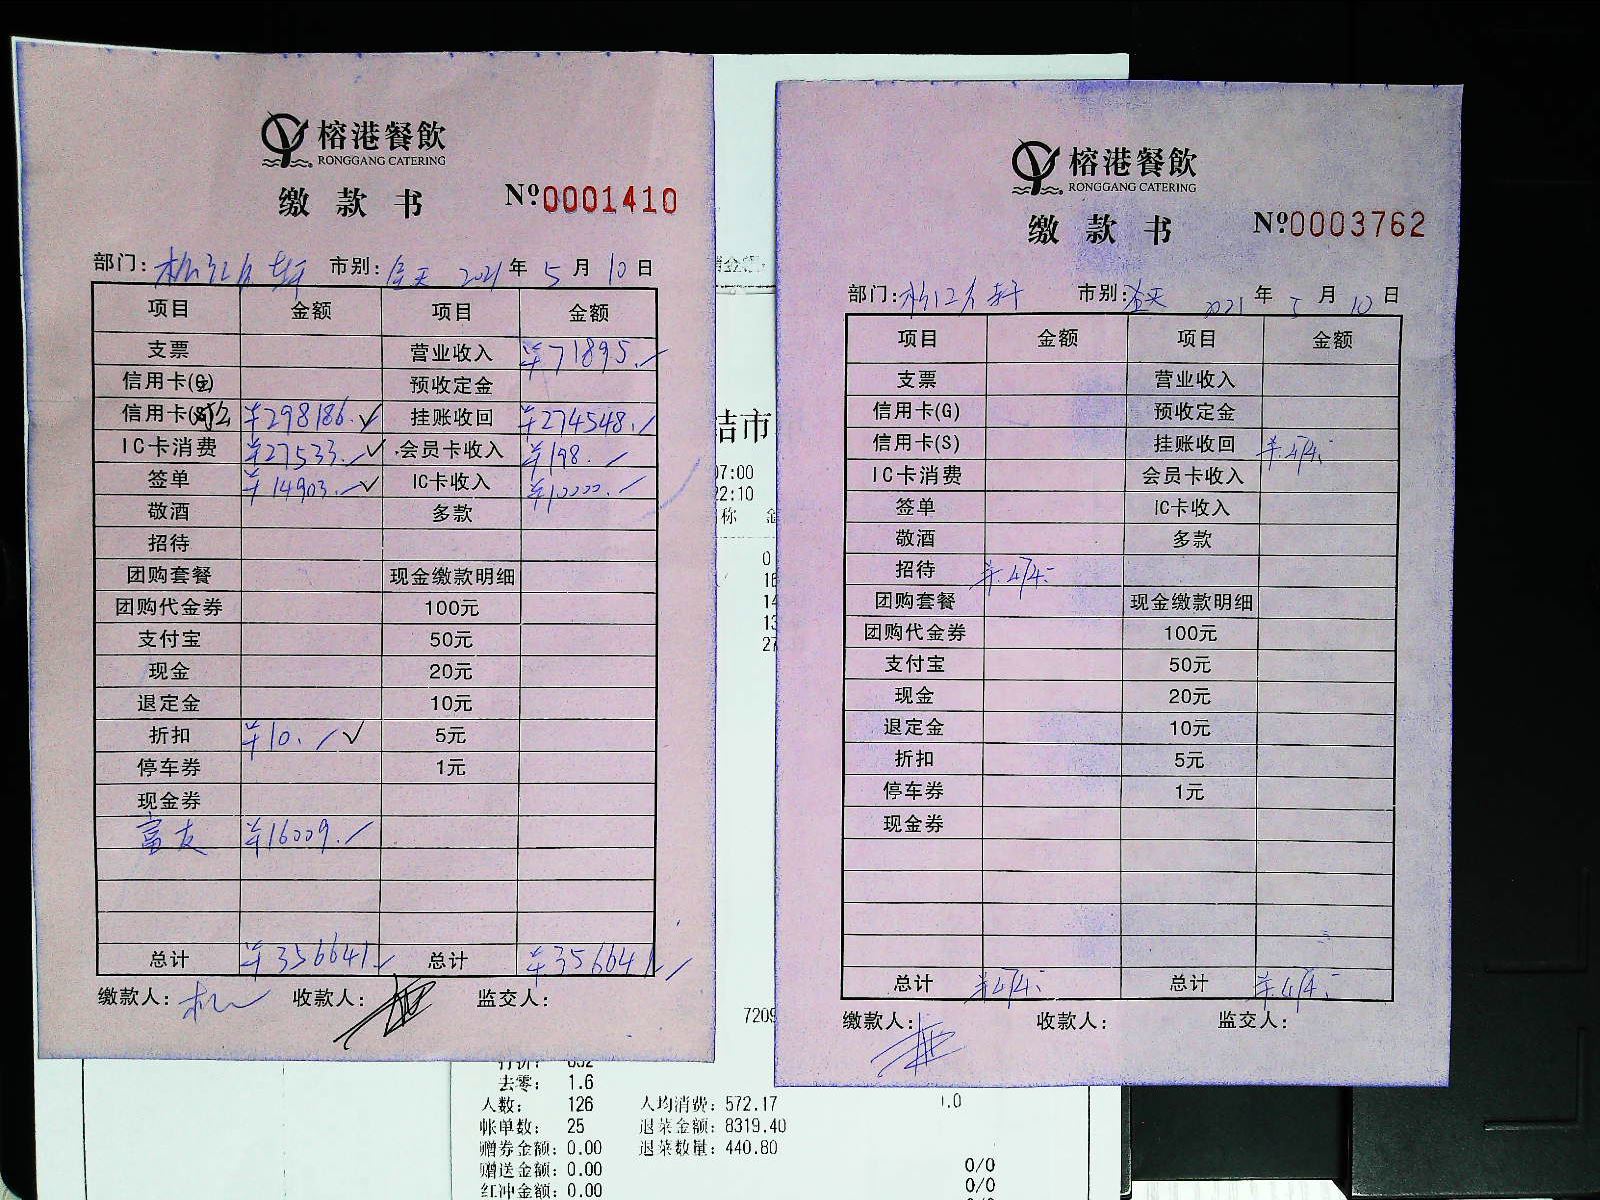 榕港餐飲
RONGGANG CATERING
缴款书 Nº0001410
部门: 市别: 全天 2021年5月10日
项目 金额 项目 金额
支票 营业收入 ¥71895.
信用卡(G) 预收定金
信用卡(S) ¥298186. 挂账收回 ¥274548.
IC卡消费 ¥27533. 会员卡收入 ¥198.
签单 ¥14903. IC卡收入 ¥10000.
敬酒 多款
招待
团购套餐 现金缴款明细
团购代金券 100元
支付宝 50元
现金 20元
退定金 10元
折扣 ¥10. 5元
停车券 1元
现金券
富友 ¥16009.
总计 ¥356641 总计 ¥356641
缴款人: 收款人: 监交人:
榕港餐飲
RONGGANG CATERING
缴款书 Nº0003762
部门: 市别: 全天 2021年5月10日
项目 金额 项目 金额
支票 营业收入
信用卡(G) 预收定金
信用卡(S) 挂账收回 ¥414.
IC卡消费 会员卡收入
签单 IC卡收入
敬酒 多款
招待 ¥414.
团购套餐 现金缴款明细
团购代金券 100元
支付宝 50元
现金 20元
退定金 10元
折扣 5元
停车券 1元
现金券
总计 ¥414. 总计 ¥414.
缴款人: 收款人: 监交人:
结市
07:00
22:10
称 金
0
16
14
13
27
7209
去零: 1.6
人数: 126 人均消费: 572.17 1.0
帐单数: 25 退菜金额: 8319.40
赠券金额: 0.00 退菜数量: 440.80
赠送金额: 0.00 0/0
红冲金额: 0.00 0/0